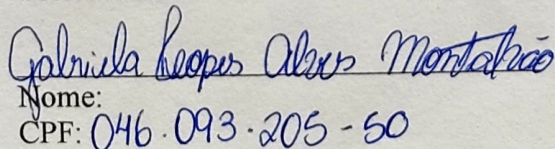 Gabriela Lopes Alves Montalvão
Nome:
CPF: 046.093.205-50